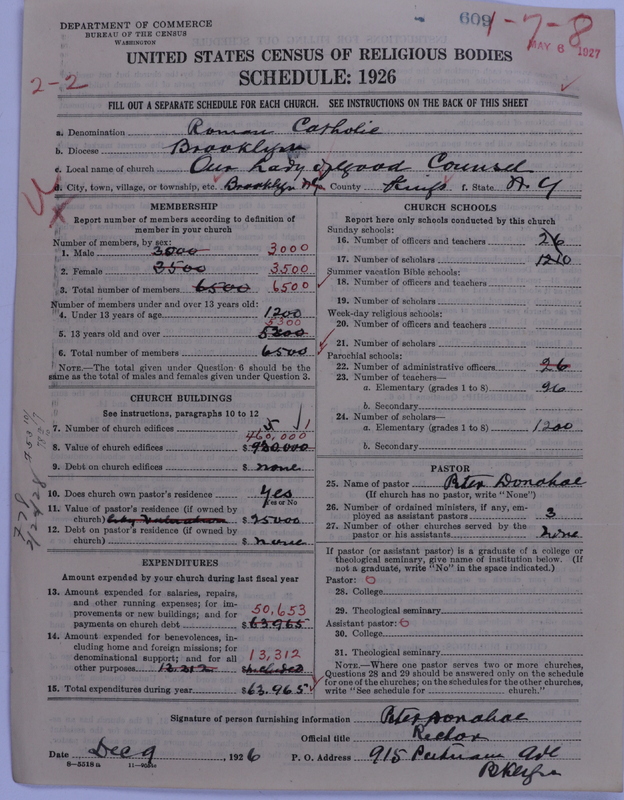 DEPARTMENT OF COMMERCE
BUREAU OF THE CENSUS
WASHINGTON
609
1-7-8
MAY 6 1927
2-2
UNITED STATES CENSUS OF RELIGIOUS BODIES
SCHEDULE: 1926
FILL OUT A SEPARATE SCHEDULE FOR EACH CHURCH. SEE INSTRUCTIONS ON THE BACK OF THIS SHEET
a. Denomination Roman Catholic
b. Diocese Brooklyn
c. Local name of church Our Lady of Good Counsel
d. City, town, village, or township, etc. Brooklyn County Kings f. State N Y
MEMBERSHIP
Report number of members according to definition of
member in your church
Number of members, by sex:
1. Male 3000 3000
2. Female 3500 3500
3. Total number of members 6500 6500
Number of members under and over 13 years old:
4. Under 13 years of age 1200
5300
5. 13 years old and over 5200
6. Total number of members 6500
NOTE.—The total given under Question 6 should be the
same as the total of males and females given under Question 3.
CHURCH BUILDINGS
See instructions, paragraphs 10 to 12
7. Number of church edifices 5 1
460,000
8. Value of church edifices $
9. Debt on church edifices $ none
10. Does church own pastor's residence yes
Yes or No
11. Value of pastor's residence (if owned by
church) $ 25000
12. Debt on pastor's residence (if owned by
church) $ none
EXPENDITURES
Amount expended by your church during last fiscal year
13. Amount expended for salaries, repairs,
and other running expenses; for im-
provements or new buildings; and for 50,653
payments on church debt $ 63.965
14. Amount expended for benevolences, in-
cluding home and foreign missions; for
denominational support; and for all 13,312
other purposes $ included
15. Total expenditures during year $ 63.965
CHURCH SCHOOLS
Report here only schools conducted by this church
Sunday schools:
16. Number of officers and teachers 26
17. Number of scholars 1210
Summer vacation Bible schools:
18. Number of officers and teachers
19. Number of scholars
Week-day religious schools:
20. Number of officers and teachers
21. Number of scholars
Parochial schools:
22. Number of administrative officers 26
23. Number of teachers—
a. Elementary (grades 1 to 8) 26
b. Secondary
24. Number of scholars—
a. Elementary (grades 1 to 8) 1200
b. Secondary
PASTOR
25. Name of pastor Peter Donahoe
(If church has no pastor, write "None")
26. Number of ordained ministers, if any, em-
ployed as assistant pastors 3
27. Number of other churches served by the
pastor or his assistants none
If pastor (or assistant pastor) is a graduate of a college or
theological seminary, give name of institution below. (If
not a graduate, write "No" in the space indicated.)
Pastor: 0
28. College
29. Theological seminary
Assistant pastor: 0
30. College
31. Theological seminary
NOTE.—Where one pastor serves two or more churches,
Questions 28 and 29 should be answered only on the schedule
for one of the churches; on the schedules for the other churches,
write "See schedule for church."
Signature of person furnishing information Peter Donahoe
Official title Rector
Date Dec 9, 1926 P. O. Address 915 Putnam Ave
Bklyn
8-5518 a